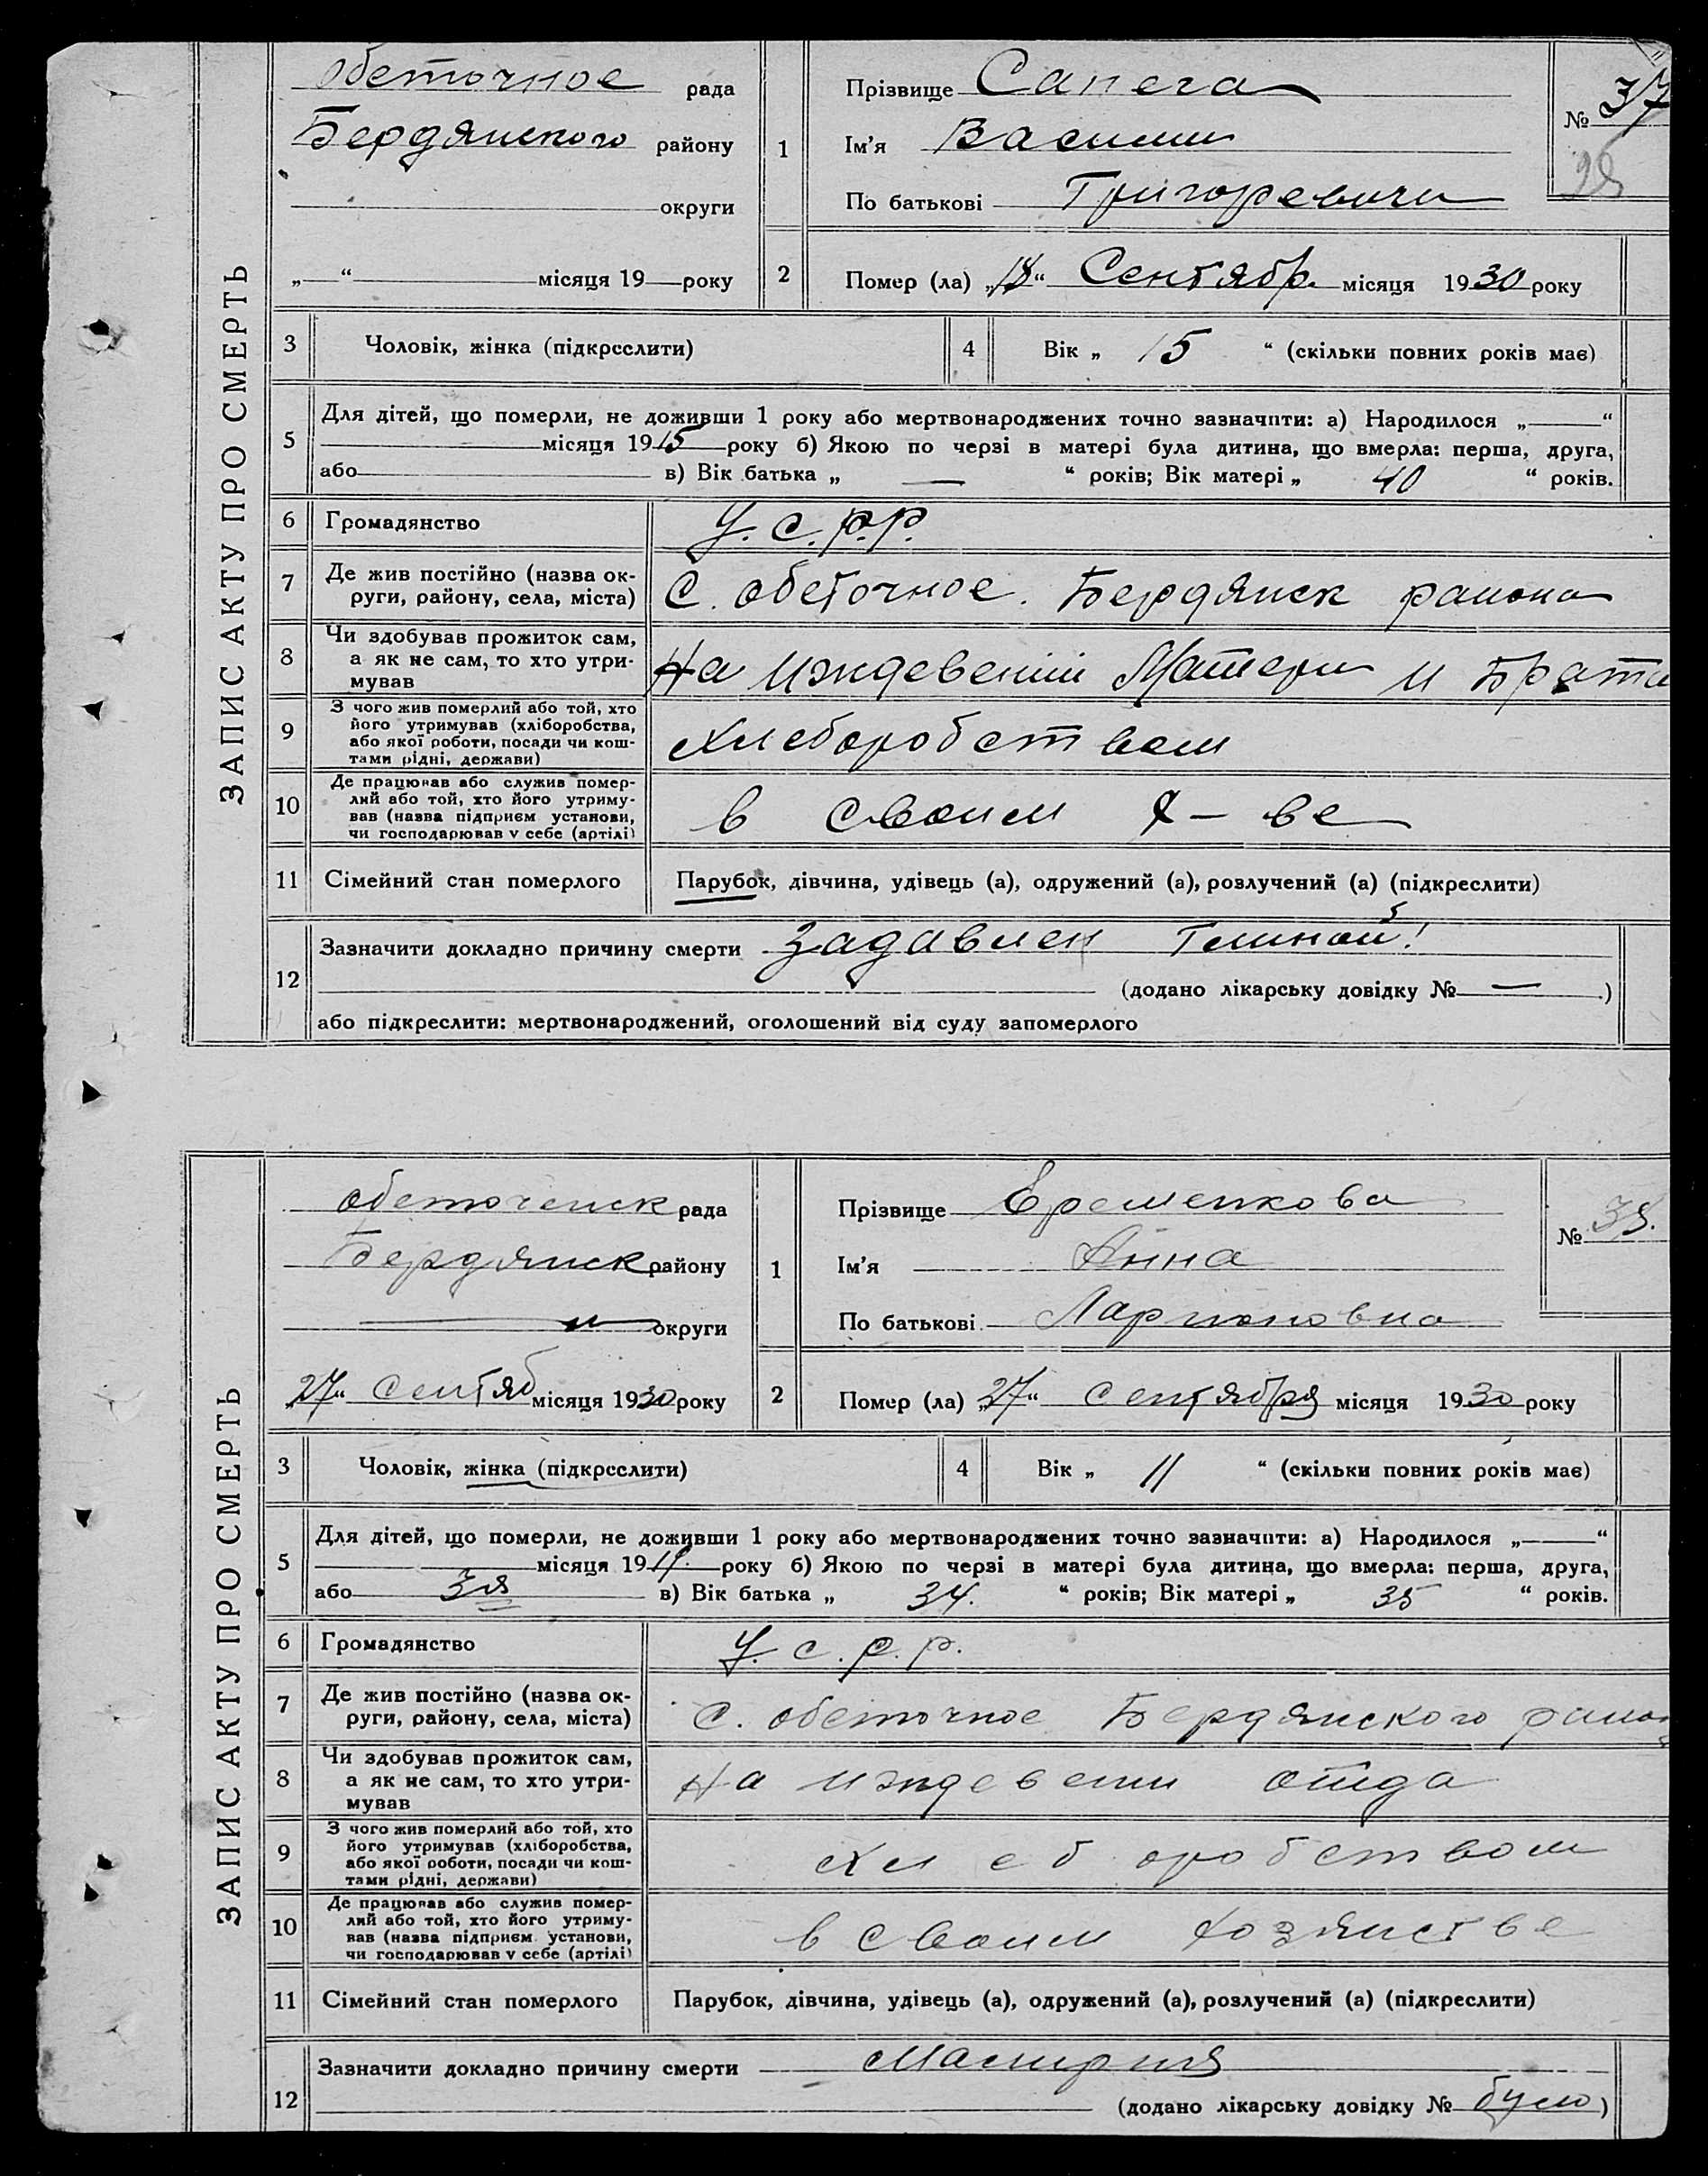 ЗАПИС АКТУ ПРО СМЕРТЬ
Обеточное рада
Бердянского району
округи
„ “ місяця 19 року
1
Прізвище Сапега
Ім’я Василий
По батькові Григоревич
№ 37
2
Помер (ла) „18“ Сентябр. місяця 1930 року
3 Чоловік, жінка (підкреслити)
4 Вік „ 15 “ (скільки повних років має)
5 Для дітей, що померли, не доживши 1 року або мертвонароджених точно зазначити: а) Народилося „ “
місяця 1915 року б) Якою по черзі в матері була дитина, що вмерла: перша, друга,
або в) Вік батька „ — “ років; Вік матері „ 40 “ років.
6 Громадянство У.С.Р.Р.
7 Де жив постійно (назва ок-
руги, району, села, міста)
С. Обеточное. Бердянск района
8 Чи здобував прожиток сам,
а як не сам, то хто утри-
мував
На иждевении Матери и Брата
9 З чого жив померлий або той, хто
його утримував (хліборобства,
або якої роботи, посади чи кош-
тами рідні, держави)
Хлеборобством
10 Де працював або служив помер-
лий або той, хто його утриму-
вав (назва підприєм установи,
чи господарював у себе (артілі)
в своим х-ве
11 Сімейний стан померлого Парубок, дівчина, удівець (а), одружений (а), розлучений (а) (підкреслити)
12 Зазначити докладно причину смерти Задавлен Глиной!
(додано лікарську довідку № — )
або підкреслити: мертвонароджений, оголошений від суду запомерлого
ЗАПИС АКТУ ПРО СМЕРТЬ
Обеточенск рада
Бердянск району
округи
„27“ Сентяб місяця 1930 року
1
Прізвище Еременкова
Ім’я Анна
По батькові Ларионовна
№ 38.
2
Помер (ла) „27“ Сентября місяця 1930 року
3 Чоловік, жінка (підкреслити)
4 Вік „ 11 “ (скільки повних років має)
5 Для дітей, що померли, не доживши 1 року або мертвонароджених точно зазначити: а) Народилося „ “
місяця 1919. року б) Якою по черзі в матері була дитина, що вмерла: перша, друга,
або 3я в) Вік батька „ 34. “ років; Вік матері „ 35 “ років.
6 Громадянство У.С.Р.Р.
7 Де жив постійно (назва ок-
руги, району, села, міста)
С. Обеточное Бердянского район
8 Чи здобував прожиток сам,
а як не сам, то хто утри-
мував
На иждевении отца
9 З чого жив померлий або той, хто
його утримував (хліборобства,
або якої роботи, посади чи кош-
тами рідні, держави)
Хлеборобством
10 Де працював або служив помер-
лий або той, хто його утриму-
вав (назва підприєм установи,
чи господарював у себе (артілі)
в своим хозяистве
11 Сімейний стан померлого Парубок, дівчина, удівець (а), одружений (а), розлучений (а) (підкреслити)
12 Зазначити докладно причину смерти Малирия
(додано лікарську довідку № )